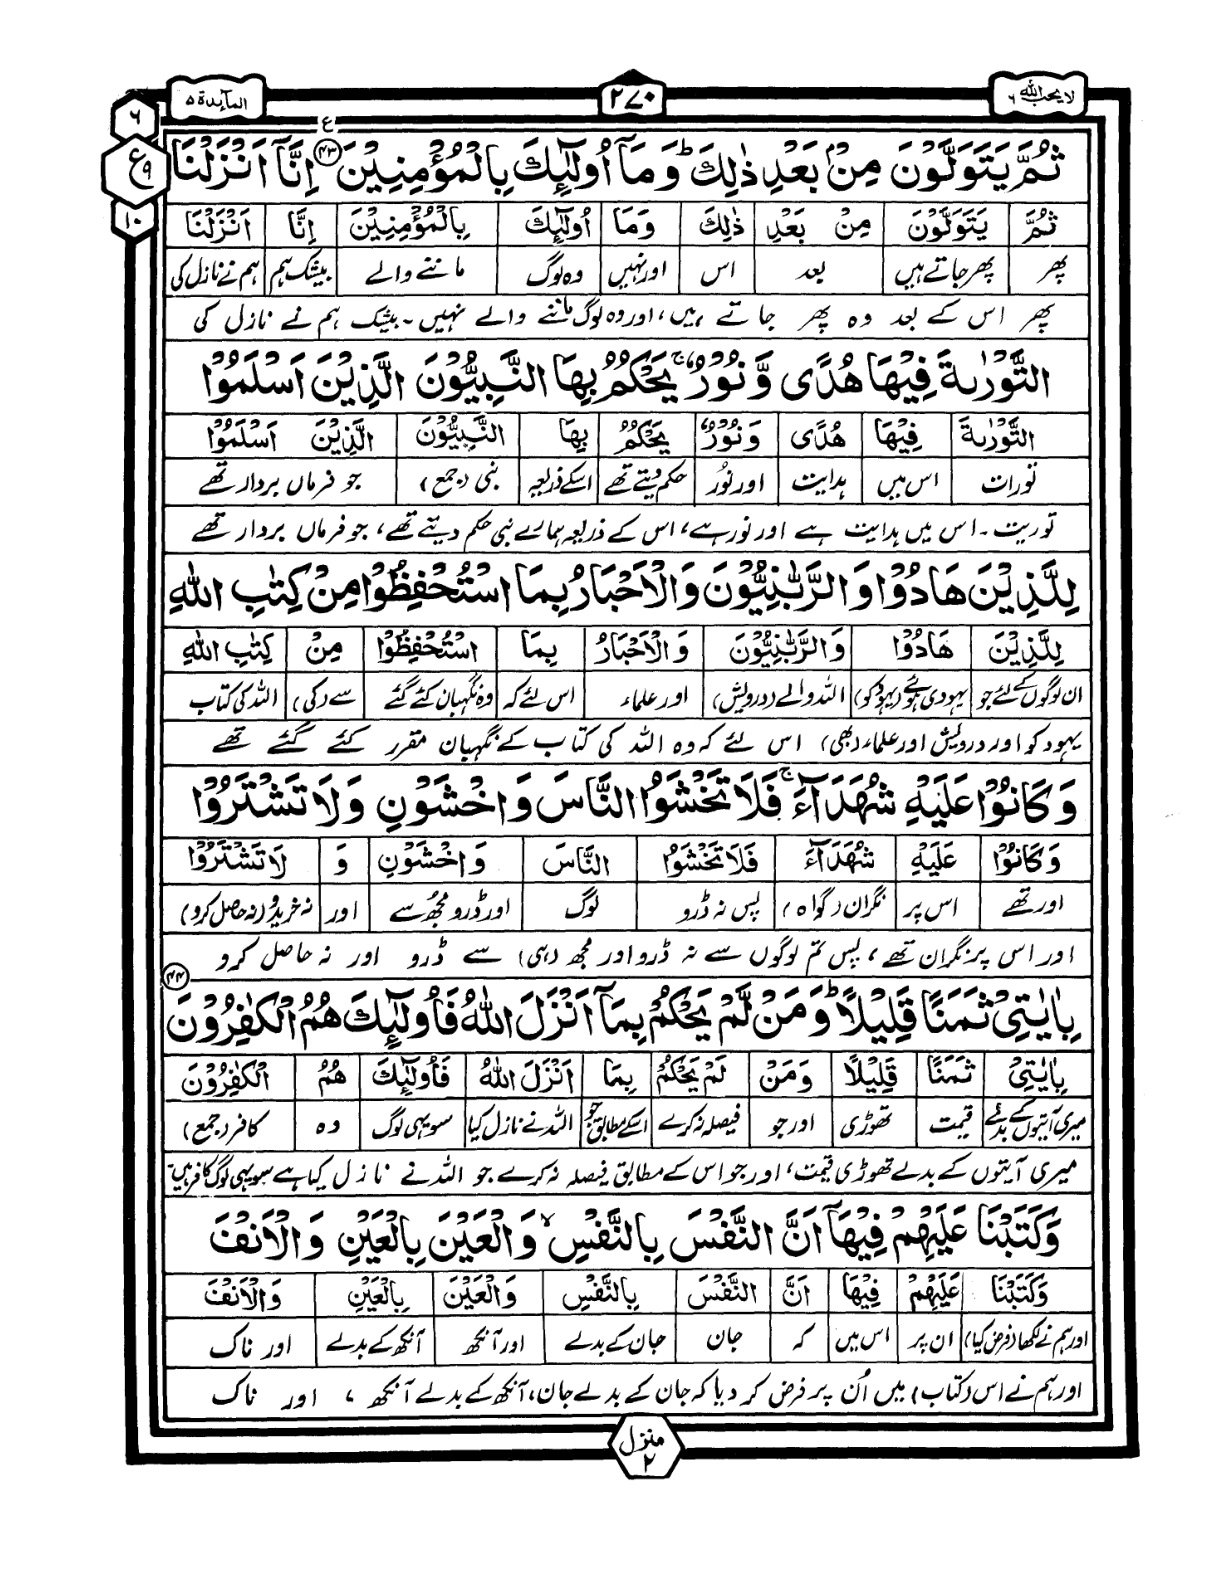 المآئدة ۵
۲۷۰
لا یحب الله ۶
۶
ع ۹
۱۰
ع
ثُمَّ يَتَوَلَّوْنَ مِنْۢ بَعْدِ ذٰلِكَ ؕ وَمَاۤ اُولٰٓئِكَ بِالْمُؤْمِنِيْنَ ۴۳ اِنَّاۤ اَنْزَلْنَا
ثُمَّ يَتَوَلَّوْنَ مِنْ بَعْدِ ذٰلِكَ وَمَا اُولٰٓئِكَ بِالْمُؤْمِنِيْنَ اِنَّا اَنْزَلْنَا
پھر پھر جاتے ہیں بعد اس اور نہیں وہ لوگ ماننے والے بیشک ہم ہم نے نازل کی
پھر اس کے بعد وہ پھر جاتے ہیں، اور وہ لوگ ماننے والے نہیں۔ بیشک ہم نے نازل کی
التَّوْرٰىةَ فِيْهَا هُدًى وَّ نُوْرٌ ۚ يَحْكُمُ بِهَا النَّبِيُّوْنَ الَّذِيْنَ اَسْلَمُوْا
التَّوْرٰىةَ فِيْهَا هُدًى وَنُوْرٌ يَحْكُمُ بِهَا النَّبِيُّوْنَ الَّذِيْنَ اَسْلَمُوْا
تورات اس میں ہدایت اور نُور حکم دیتے تھے اسکے ذریعہ نبی (جمع) جو فرماں بردار تھے
توریت۔ اس میں ہدایت ہے اور نور ہے، اس کے ذریعہ ہمارے نبی حکم دیتے تھے، جو فرماں بردار تھے
لِلَّذِيْنَ هَادُوْا وَ الرَّبّٰنِيُّوْنَ وَالْاَحْبَارُ بِمَا اسْتُحْفِظُوْا مِنْ كِتٰبِ اللّٰهِ
لِلَّذِيْنَ هَادُوْا وَالرَّبّٰنِيُّوْنَ وَالْاَحْبَارُ بِمَا اسْتُحْفِظُوْا مِنْ كِتٰبِ اللّٰهِ
ان لوگوں کے لئے جو یہودی ہوئے (یہود کو) اللہ والے (درویش) اور علماء اس لئے کہ وہ نگہبان کئے گئے سے (کی) اللہ کی کتاب
یہود کو اور درویش اور علماء (بھی) اس لئے کہ وہ اللہ کی کتاب کے نگہبان مقرر کئے گئے تھے
وَ كَانُوْا عَلَيْهِ شُهَدَآءَ ۚ فَلَا تَخْشَوُا النَّاسَ وَ اخْشَوْنِ وَلَا تَشْتَرُوْا
وَ كَانُوْا عَلَيْهِ شُهَدَآءَ فَلَا تَخْشَوُا النَّاسَ وَ اخْشَوْنِ وَ لَا تَشْتَرُوْا
اور تھے اس پر نگران (گواہ) پس نہ ڈرو لوگ اور ڈرو مجھ سے اور نہ خریدو (نہ حاصل کرو)
اور اس پر نگران تھے، پس تم لوگوں سے نہ ڈرو اور مجھ (ہی) سے ڈرو اور نہ حاصل کرو
بِاٰيٰتِيْ ثَمَنًا قَلِيْلًا ؕ وَمَنْ لَّمْ يَحْكُمْ بِمَاۤ اَنْزَلَ اللّٰهُ فَاُولٰٓئِكَ هُمُ الْكٰفِرُوْنَ ۴۴
بِاٰيٰتِيْ ثَمَنًا قَلِيْلًا وَمَنْ لَمْ يَحْكُمْ بِمَا اَنْزَلَ اللّٰهُ فَاُولٰٓئِكَ هُمُ الْكٰفِرُوْنَ
میری آیتوں کے بدلے قیمت تھوڑی اور جو فیصلہ نہ کرے اسکے مطابق جو اللہ نے نازل کیا سو یہی لوگ وہ کافر (جمع)
میری آیتوں کے بدلے تھوڑی قیمت، اور جو اس کے مطابق فیصلہ نہ کرے جو اللہ نے نازل کیا ہے سو یہی لوگ کافر ہیں
وَكَتَبْنَا عَلَيْهِمْ فِيْهَاۤ اَنَّ النَّفْسَ بِالنَّفْسِ ۙ وَالْعَيْنَ بِالْعَيْنِ وَالْاَنْفَ
وَكَتَبْنَا عَلَيْهِمْ فِيْهَا اَنَّ النَّفْسَ بِالنَّفْسِ وَالْعَيْنَ بِالْعَيْنِ وَالْاَنْفَ
اور ہم نے لکھا (فرض کیا) ان پر اس میں کہ جان جان کے بدلے اور آنکھ آنکھ کے بدلے اور ناک
اور ہم نے اس (کتاب) میں اُن پر فرض کر دیا کہ جان کے بدلے جان، آنکھ کے بدلے آنکھ، اور ناک
منزل ۲